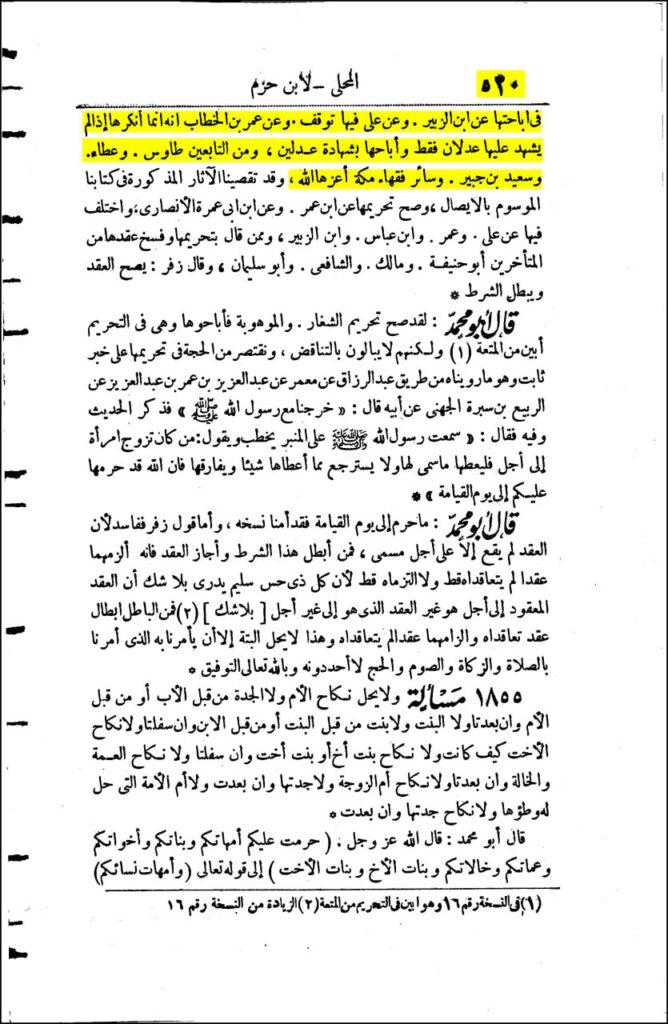 المحلى - لابن حزم
٥٢٠
فى اباحتها عن ابن الزبير . وعن على فيها توقف . وعن عمر بن الخطاب انه انما أنكرها إذا لم
يشهد عليها عدلان فقط وأباحها بشهادة عدلين ، ومن التابعين طاوس . وعطاء.
وسعيد بن جبير . وسائر فقهاء مكة أعزها الله ، وقد تقصينا الآثار المذكورة فى كتابنا
الموسوم بالايصال ، وصح تحريمها عن ابن عمر . وعن ابن ابى عمرة الأنصارى ، واختلف
فيها عن على . وعمر . وابن عباس . وابن الزبير ، وممن قال بتحريمها وفسخ عقدها من
المتأخرين أبو حنيفة . ومالك . والشافعى . وأبو سليمان ، وقال زفر : يصح العقد
ويبطل الشرط *
قال أبو محمد : لقد صح تحريم الشغار . والموهوبة فأباحوها وهى فى التحريم
أبين من المتعة (١) ولكنهم لا يبالون بالتناقض ، ونقتصر من الحجة فى تحريمها على خبر
ثابت وهو ما رويناه من طريق عبد الرزاق عن معمر عن عبد العزيز بن عمر بن عبد العزيز عن
الربيع بن سبرة الجهنى عن أبيه قال : « خرجنا مع رسول الله ﷺ » فذكر الحديث
وفيه فقال : « سمعت رسول الله ﷺ على المنبر يخطب ويقول : من كان تزوج امرأة
إلى أجل فليعطها ما سمى لها ولا يسترجع مما أعطاها شيئا ويفارقها فان الله قد حرمها
عليكم إلى يوم القيامة » *
قال أبو محمد : ما حرم إلى يوم القيامة فقد أمنا نسخه ، وأما قول زفر ففاسد لأن
العقد لم يقع إلا على أجل مسمى ، فمن أبطل هذا الشرط وأجاز العقد فانه ألزمهما
عقدا لم يتعاقداه قط ولا التزماه قط لأن كل ذى حس سليم يدرى بلا شك أن العقد
المعقود إلى أجل هو غير العقد الذى هو إلى غير أجل [ بلا شك ] (٢) فمن الباطل ابطال
عقد تعاقداه والزامهما عقدا لم يتعاقداه وهذا لا يحل البتة إلا أن يأمرنا به الذى أمرنا
بالصلاة والزكاة والصوم والحج لا أحد دونه وبالله تعالى التوفيق *
١٨٥٥ مسألة ولا يحل نكاح الأم ولا الجدة من قبل الأب أو من قبل
الأم وان بعدتا ولا البنت ولا بنت من قبل البنت أو من قبل الابن وان سفلتا ولا نكاح
الأخت كيف كانت ولا نكاح بنت أخ أو بنت أخت وان سفلتا ولا نكاح العمة
والخالة وان بعدتا ولا نكاح أم الزوجة ولا جدتها وان بعدت ولا أم الأمة التى حل
له وطؤها ولا نكاح جدتها وان بعدت *
قال أبو محمد : قال الله عز وجل . ( حرمت عليكم أمهاتكم وبناتكم وأخواتكم
وعماتكم وخالاتكم وبنات الأخ وبنات الأخت ) إلى قوله تعالى ( وأمهات نسائكم )
(١) فى النسخة رقم ١٦ وهو ابين فى التحريم من المتعة (٢) الزيادة من النسخة رقم ١٦